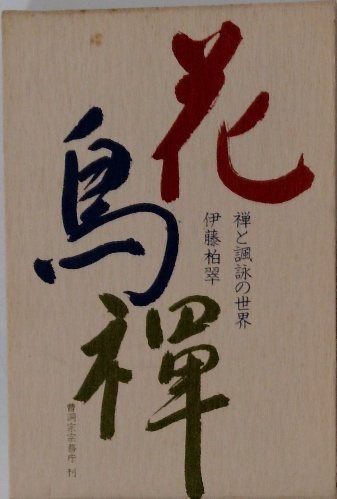 花鳥禪
禅と諷詠の世界
伊藤柏翠
曹洞宗宗務庁 刊